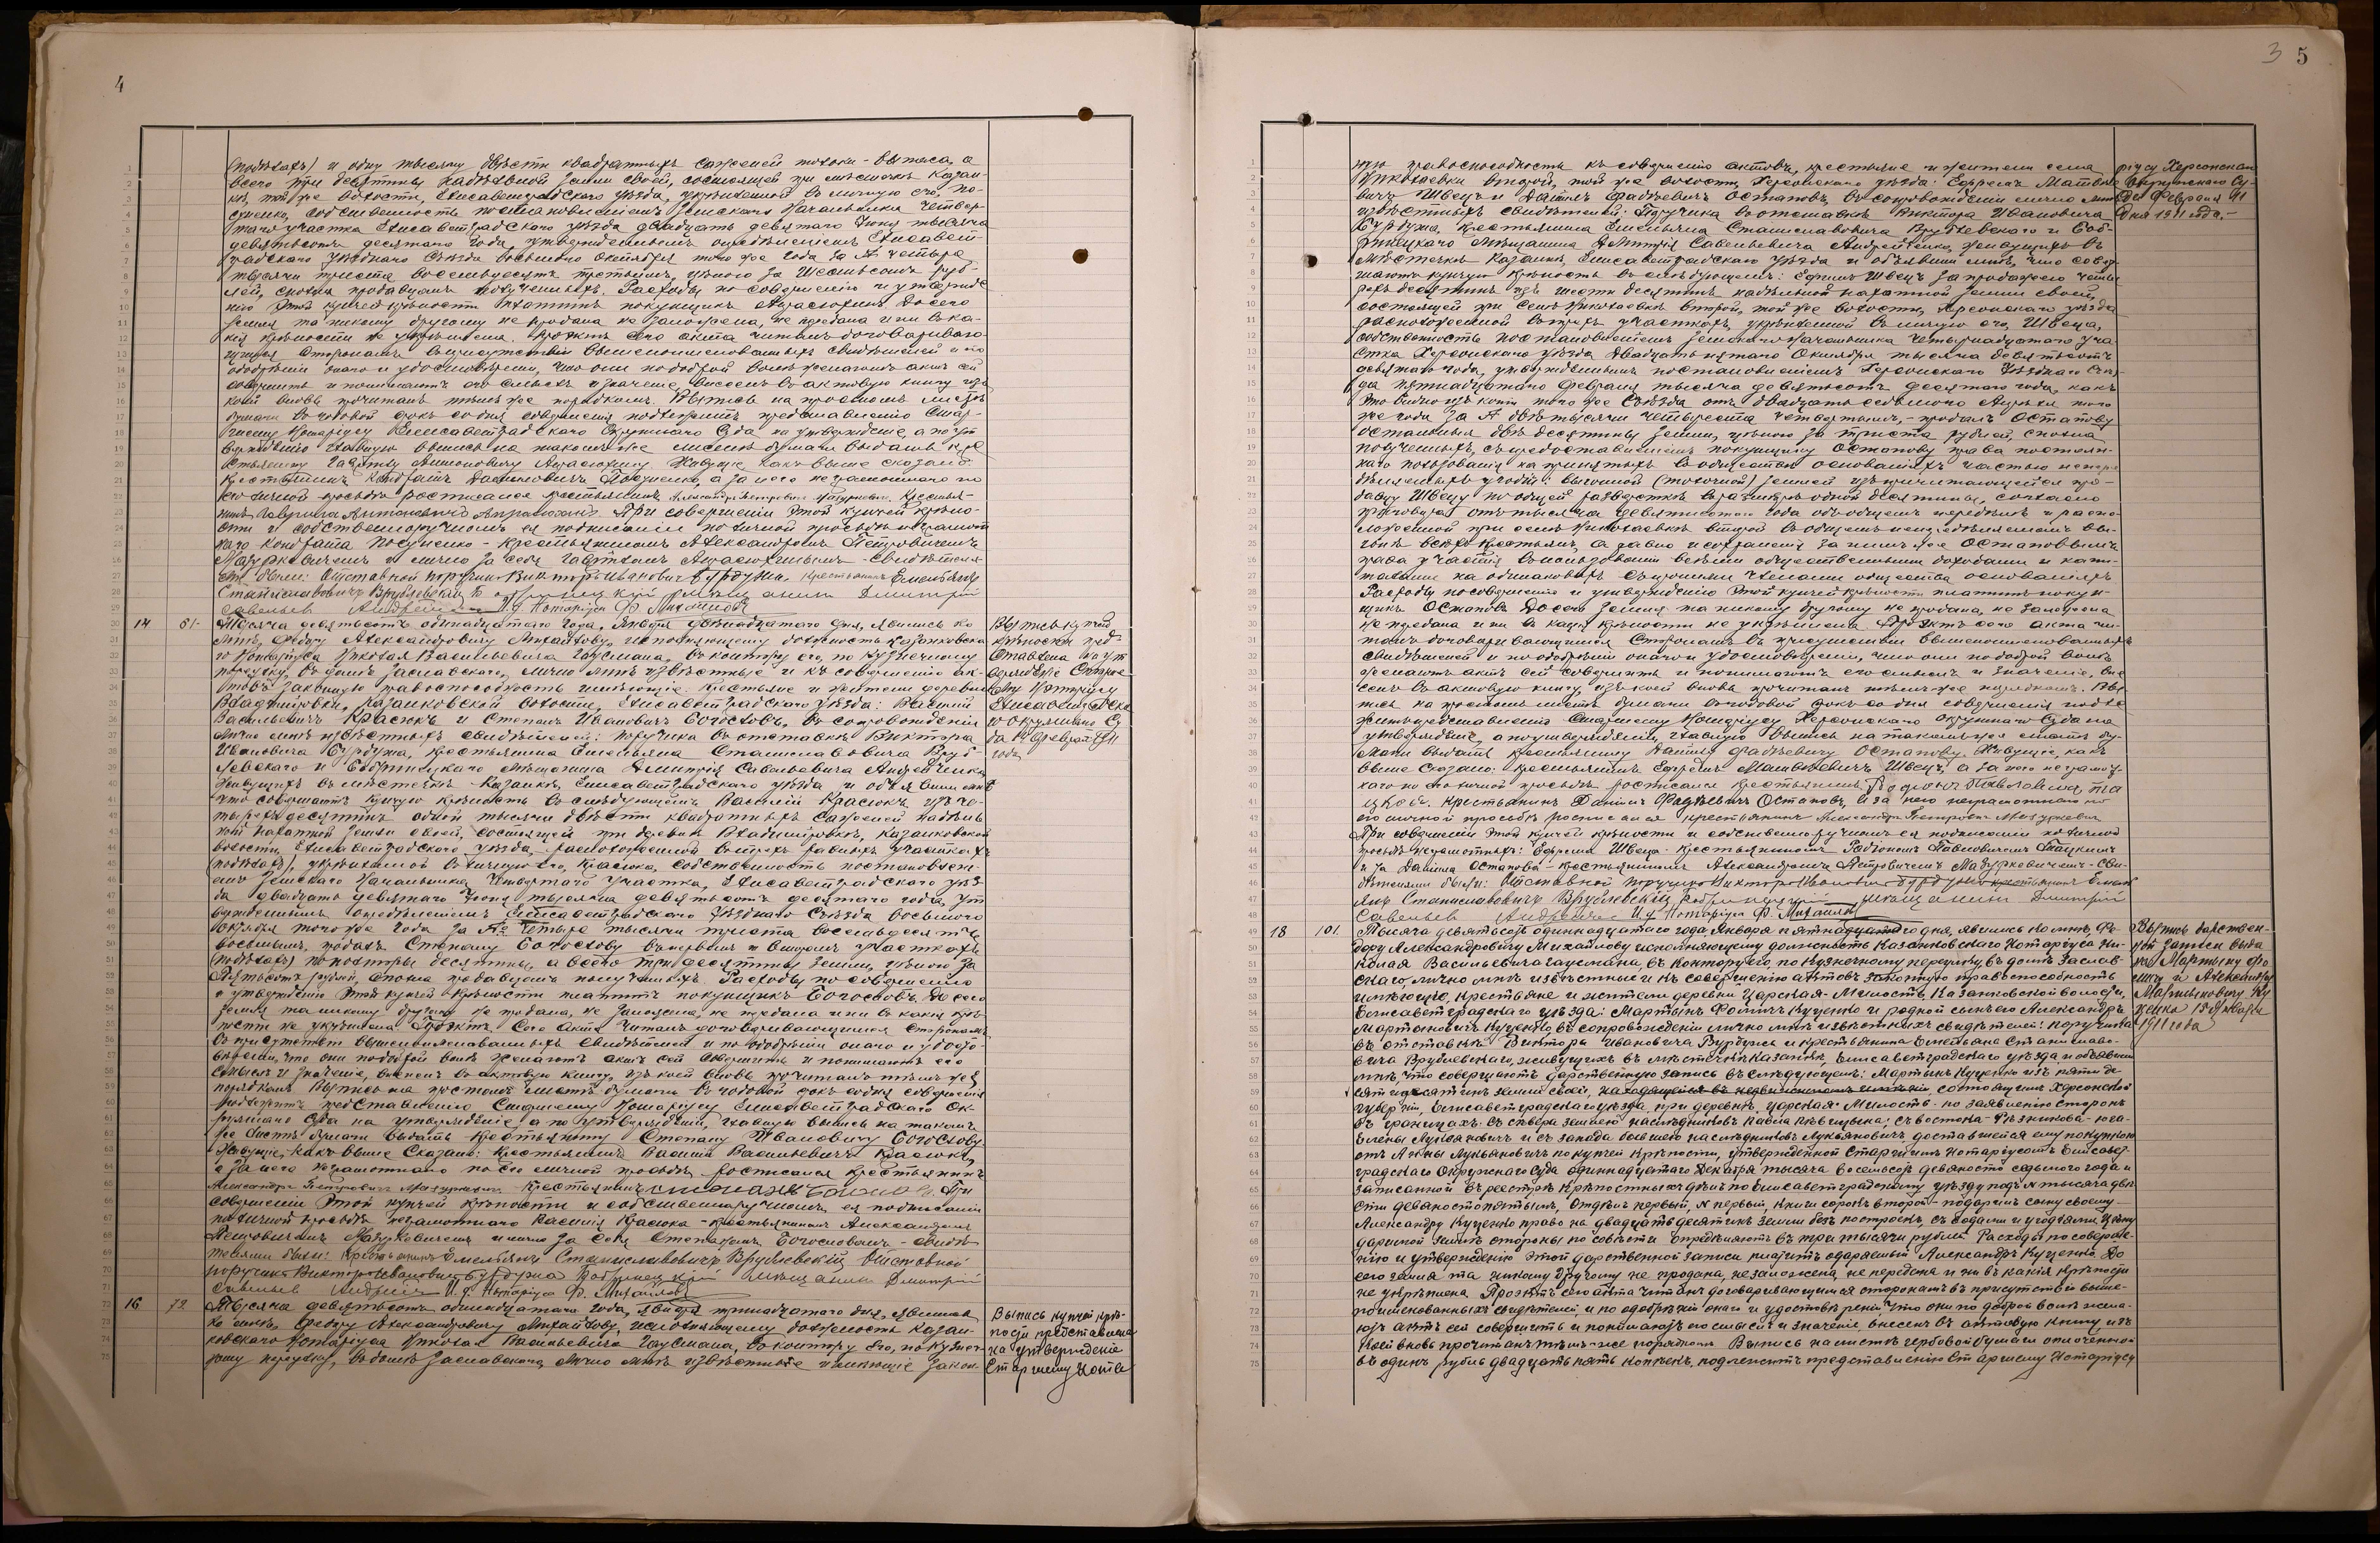 4
(подѣлахъ) и одну тысячу двѣсти квадратныхъ саженей толоки-выпаса, а
всего три десятины надѣльной земли своей, состоящей при мѣстечкѣ Казан-
кѣ, той же волости, Елисаветградскаго уѣзда, укрѣпленной въ личную его, По-
суненко, собственность постановленіемъ Земскаго Начальника Четвер-
таго участка Елисаветградскаго уѣзда двадцать девятаго Іюня тысяча
девятьсотъ десятаго года, утвержденнымъ опредѣленіемъ Елисавет-
градскаго Уѣзднаго Съѣзда восьмого Октября того же года за № четыре
тысячи триста восемьдесятъ третьимъ, цѣною за шестьсотъ руб-
лей, сполна продавцомъ полученныхъ. Расходы по совершенію и утвержде
нію этой купчей крѣпости платитъ покупщикъ Апраслюхинъ. До сего
земля та никому другому не продана, не заложена, не передана и ни въ ка-
кія крѣпости не укрѣплена. Проэктъ сего акта читанъ договариваю-
щимся сторонамъ въ присутствіи вышепоименованныхъ свидѣтелей и по
одобреніи онаго и удостовѣреніи, что они по доброй волѣ желаютъ актъ сей
совершить и понимаютъ его смыслъ и значеніе, внесенъ въ актовую книгу, изъ
коей вновь прочитанъ тѣмъ же порядкомъ. Выпись на простомъ листѣ
бумаги въ годовой срокъ со дня совершенія подлежитъ представленію Стар-
шему Нотаріусу Елисаветградскаго Окружнаго Суда на утвержденіе, а по ут
вержденію главную выпись на такомъ же листѣ бумаги выдать кре
стьянину Гавріилу Антоновичу Апраслюхину. Живущіе, какъ выше сказано:
Крестьянинъ Кондратъ Посуненко, а за него неграмотнаго по
его личной просьбѣ росписался крестьянинъ Александръ Петровичъ Мазуркевичъ. Крестья-
нинъ Гавріилъ Антоновичъ При совершеніи этой купчей крѣпо-
сти и собственноручномъ ея подписаніи по личной просьбѣ неграмот
наго Кондрата Посуненко - крестьяниномъ Александромъ Петровичемъ
Мазуркевичемъ и лично за себя Гавріиломъ Апраслюхинымъ - свидѣтеля-
ми были: Отставной поручикъ Викторъ Ивановичъ Бурдужа. Крестьянинъ Емельянъ
Станиславовичъ Врублевскій. Бобринецкій мѣщанинъ Дмитрій
Савельев Андрейченко И. д. Нотаріуса Ф. Михайловъ
14 61. Тысяча девятьсотъ одиннадцатаго года, Января двѣнадцатаго дня, явились ко
мнѣ, Федору Александровичу Михайлову, исполняющему должность Казанковска
го Нотаріуса Николая Васильевича Гаусмана, въ контору его, по Кузнечному
переулку, въ домѣ Заславскаго, лично мнѣ извѣстные и къ совершенію ак-
товъ законную правоспособность имѣющіе крестьяне и жители деревни
Владиміровки, Казанковской волости, Елисаветградскаго уѣзда: Василій
Васильевичъ Красюкъ и Степанъ Ивановичъ Богословъ, въ сопровожденіи
лично мнѣ извѣстныхъ свидѣтелей: поручика въ отставкѣ Виктора
Ивановича Бурдужа, крестьянина Емельяна Станиславовича Вруб-
левскаго и Бобринецкаго мѣщанина Дмитрія Савельевича Андрейченко,
живущихъ въ мѣстечкѣ Казанкѣ, Елисаветградскаго уѣзда и объявили мнѣ
что совершаютъ купчую крѣпость въ слѣдующемъ: Василій Красюкъ изъ че-
тырехъ десятинъ одной тысячи двѣсти квадратныхъ саженей надѣль
ной пахатной земли своей, состоящей при деревнѣ Владиміровкѣ, Казанковской
волости, Елисаветградскаго уѣзда, расположенной въ трехъ разныхъ участкахъ
(подѣлахъ), укрѣпленной въ личную его, Красюка, собственность постановлені-
емъ Земскаго Начальника Четвертаго участка, Елисаветградскаго уѣз-
да двадцать девятаго Іюня тысяча девятьсотъ десятаго года, ут
вержденнымъ опредѣленіемъ Елисаветградскаго Уѣзднаго Съѣзда восьмого
Октября того же года за № четыре тысячи триста восемьдесятъ
восьмымъ, продалъ Степану Богослову въ первомъ и второмъ участкахъ
(подѣлахъ) по полторы десятины, а всего три десятины земли, цѣною за
пятьсотъ рублей, сполна продавцомъ полученныхъ. Расходы по совершенію
и утвержденію этой купчей крѣпости платитъ покупщикъ Богословъ. До сего
земля та никому другому не продана, не заложена, не передана и ни въ какія крѣ-
пости не укрѣплена. Проэктъ сего акта читанъ договаривающимся сторонамъ
въ присутствіи вышепоименованныхъ свидѣтелей и по одобреніи онаго и удосто-
вѣреніи, что они по доброй волѣ желаютъ актъ сей совершить и понимаютъ его
смыслъ и значеніе, внесенъ въ актовую книгу, изъ коей вновь прочитанъ тѣмъ же
порядкомъ. Выпись на простомъ листѣ бумаги въ годовой срокъ со дня совершенія
подлежитъ представленію Старшему Нотаріусу Елисаветградскаго Ок-
ружнаго Суда на утвержденіе, а по утвержденіи, главную выпись на такомъ
же листѣ бумаги выдать крестьянину Степану Ивановичу Богослову.
Живущіе, какъ выше сказано: Крестьянинъ Василій Васильевичъ Красюкъ,
а за него неграмотнаго по его личной просьбѣ росписался крестьянинъ
Александръ Петровичъ Мазуркевичъ. Крестьянинъ Степанъ При
совершеніи этой купчей крѣпости и собственноручномъ ея подписаніи
по личной просьбѣ неграмотнаго Василія Красюка - крестьяниномъ Александромъ
Петровичемъ Мазуркевичемъ и лично за себя Степаномъ Богословомъ - свидѣ
телями были: Крестьянинъ Емельянъ Станиславовичъ Врублевскій. Отставной
поручикъ Викторъ Ивановичъ Бурдужа Бобринецкій мѣщанинъ Дмитрій
Савельев Андрейченко И. д. Нотаріуса Ф. Михайловъ
Выпись купчей
крѣпости пред-
ставлена на ут
вержденіе Старше
му Нотаріусу
Елисаветградска
го Окружнаго Су
да февраля 1911
года
16 72 Тысяча девятьсотъ одиннадцатаго года, Января тринадцатаго дня, явились
ко мнѣ, Федору Александровичу Михайлову, исполняющему должность Казан-
ковскаго Нотаріуса Николая Васильевича Гаусмана, въ контору его, по Кузнеч
ному переулку, въ домѣ Заславскаго, лично мнѣ извѣстные и имѣющіе закон-
Выпись купчей крѣ-
пости представлена
на утвержденіе
Старшему Нота
3 5
ную правоспособность къ совершенію актовъ, крестьяне и жители села
Николаевки второй, той же волости, Херсонскаго уѣзда: Ефремъ Матвѣе
вичъ Швецъ и Даніилъ Фадѣевичъ Остаповъ, въ сопровожденіи лично мнѣ
извѣстныхъ свидѣтелей: Поручика въ отставкѣ Виктора Ивановича
Бурдужа, крестьянина Емельяна Станиславовича Врублевскаго и Боб-
ринецкаго мѣщанина Дмитрія Савельевича Андрейченко, живущихъ въ
мѣстечкѣ Казанкѣ, Елисаветградскаго уѣзда и объявили мнѣ, что совер
шаютъ купчую крѣпость въ слѣдующемъ: Ефремъ Швецъ за продажею четы
рехъ десятинъ изъ шести десятинъ надѣльной пахатной земли своей,
состоящей при селѣ Николаевкѣ второй, той же волости, Херсонскаго уѣзда
расположенной въ трехъ участкахъ, укрѣпленной въ личную его, Швеца,
собственность постановленіемъ Земскаго Начальника Четырнадцатаго уча
стка Херсонскаго уѣзда двадцать пятаго Октября тысяча девятьсотъ
девятаго года, утвержденнымъ постановленіемъ Херсонскаго Уѣзднаго Съѣз
да пятнадцатаго февраля тысяча девятьсотъ десятаго года, какъ
это видно изъ копіи того же Съѣзда отъ двадцать седьмого Апрѣля того
же года за № двѣ тысячи четыреста четвертымъ, - продалъ Остапову
остальныя двѣ десятины земли, цѣною за триста рублей, сполна
полученныхъ, съ предоставленіемъ покупщику Остапову права постоян-
наго пользованія на принятыхъ въ обществѣ основаніяхъ частью непере
дѣляемыхъ угодій: выгонной (толочной) землей изъ причитающейся про-
давцу Швецу по общей разверсткѣ въ размѣрѣ одной десятины, согласно
приговора отъ тысяча девятисотаго года объ общемъ передѣлѣ и распо-
ложенной при селѣ Николаевкѣ второй въ общемъ нераздѣляемомъ вы-
гонѣ всѣхъ крестьянъ, а равно и сохраненія за нимъ же Остаповымъ
права участія въ пользованіи всѣми общественными доходами и капи-
талами на одинаковыхъ съ прочими членами общества основаніяхъ
Расходы по совершенію и утвержденію этой купчей крѣпости платитъ покуп-
щикъ Остаповъ. До сего земля та никому другому не продана, не заложена
не передана и ни въ какія крѣпости не укрѣплена. Проэктъ сего акта чи-
танъ договаривающимся сторонамъ въ присутствіи вышепоименованныхъ
свидѣтелей и по одобреніи онаго и удостовѣреніи, что они по доброй волѣ
желаютъ актъ сей совершить и понимаютъ его смыслъ и значеніе, вне
сенъ въ актовую книгу, изъ коей вновь прочитанъ тѣмъ же порядкомъ. Вы-
пись на простомъ листѣ бумаги въ годовой срокъ со дня совершенія подле
житъ представленію Старшему Нотаріусу Херсонскаго Окружнаго Суда на
утвержденіе, а по утвержденіи, главную выпись на такомъ же листѣ бу-
маги выдать крестьянину Даніилу Фадѣевичу Остапову. Живущіе, какъ
выше сказано: Крестьянинъ Ефремъ Матвѣевичъ Швецъ, а за него неграмот-
наго по его личной просьбѣ росписался крестьянинъ Родіонъ Павловичъ Та
цкова. Крестьянинъ Даніилъ Фадѣевичъ Остаповъ, а за него неграмотнаго по
его личной просьбѣ росписался крестьянинъ Александръ Петровичъ Мазуркевичъ
При совершеніи этой купчей крѣпости и собственноручномъ ея подписаніи по личной
просьбѣ неграмотныхъ: Ефрема Швеца - крестьяниномъ Родіономъ Павловичемъ Тацкимъ
и за Даніила Остапова - крестьяниномъ Александромъ Петровичемъ Мазуркевичемъ - сви-
дѣтелями были: Отставной поручикъ Викторъ Ивановичъ Бурдужа крестьянинъ Емель
янъ Станиславовичъ Врублевскій, Бобринецкій мѣщанинъ Дмитрій
Савельев Андрейченко И. д. Нотаріуса Ф. Михайловъ
ріусу Херсонскаго
Окружнаго Су-
да Февраля 9
дня 1911 года.-
18 101. Тысяча девятьсотъ одиннадцатаго года, Января пятнадцатаго дня, явились ко мнѣ, Фе-
дору Александровичу Михайлову исполняющему должность Казанковскаго Нотаріуса Ни-
колая Васильевича Гаусмана, въ контору его, по Кузнечному переулку, въ домѣ Заслав-
скаго, лично мнѣ извѣстные и къ совершенію актовъ законную правоспособность
имѣющіе, крестьяне и жители деревни Царская-Милость, Казанковской волости,
Елисаветградскаго уѣзда: Мартынъ Фомичъ Куценко и родной сынъ его Александръ
Мартыновичъ Куценко, въ сопровожденіи лично мнѣ извѣстныхъ свидѣтелей: поручика
въ отставкѣ Виктора Ивановича Бурдужа и крестьянина Емельяна Станиславо-
вича Врублевскаго, живущихъ въ мѣстечкѣ Казанкѣ, Елисаветградскаго уѣзда и объявили
мнѣ, что совершаютъ дарственную запись въ слѣдующемъ: Мартынъ Куценко изъ пяти де-
сяти десятинъ земли своей, находящейся въ недвижимомъ имѣніи, состоящемъ Херсонской
губерніи, Елисаветградскаго уѣзда, при деревнѣ Царская-Милость - по заявленію сторонъ
въ границахъ: съ сѣвера землею наслѣдниковъ Павла съ востока - Рѣзникова - юга -
Елены Лукьяновичъ и съ запада бывшаго наслѣдниковъ Лукьяновичъ доставшейся ему покупкою
отъ Лукьяновичъ по купчей крѣпости, утвержденной Старшимъ Нотаріусомъ Елисавет-
градскаго Окружнаго Суда одиннадцатаго Декабря тысяча восемьсотъ девяносто седьмого года и
записанной въ реестръ крѣпостныхъ дѣлъ по Елисаветградскому уѣзду подъ № тысяча двѣ-
сти девяносто пятымъ, отдѣлъ первый, № первый, книги сорокъ второй - подарилъ сыну своему -
Александру Куценко право на двадцать десятинъ земли безъ построекъ, съ водами и угодіями. Цѣну
даримой землѣ стороны по совѣсти опредѣляютъ въ три тысячи рублей. Расходы по соверше-
нію и утвержденію этой дарственной записи платитъ одаряемый Александръ Куценко. До
сего земля та никому другому не продана, не заложена, не передана и ни въ какія крѣпости
не укрѣплена. Проэктъ сего акта читанъ договаривающимся сторонамъ въ присутствіи выше-
поименованныхъ свидѣтелей и по одобреніи онаго и удостовѣреніи, что они по доброй волѣ жела-
ютъ актъ сей совершить и понимаютъ его смыслъ и значеніе внесенъ въ актовую книгу изъ
коей вновь прочитанъ тѣмъ же порядкомъ. Выпись на листѣ гербовой бумаги оплаченной
въ одинъ рубль двадцать пять копѣекъ, подлежитъ представленію Старшему Нотаріусу
Выпись дарствен-
ной записи выда
на Мартыну Фо
мичу и Александру
Мартыновичу Ку
ценко 15 Января
1911 года